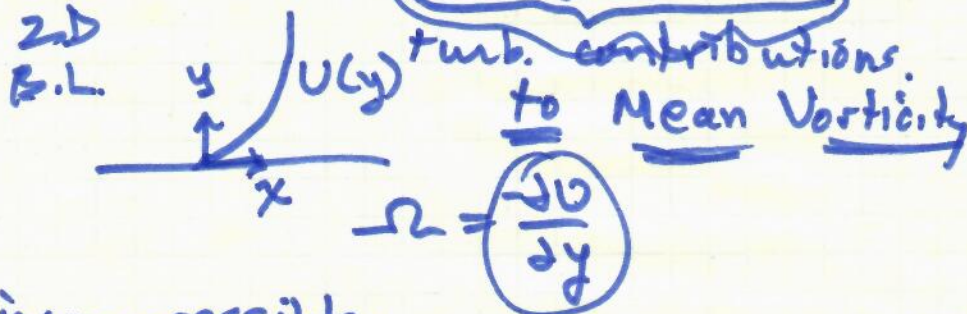 2D
B.L.
y
U(y)
x
turb. contributions.
to Mean Vorticity
Ω = -∂U/∂y
possible